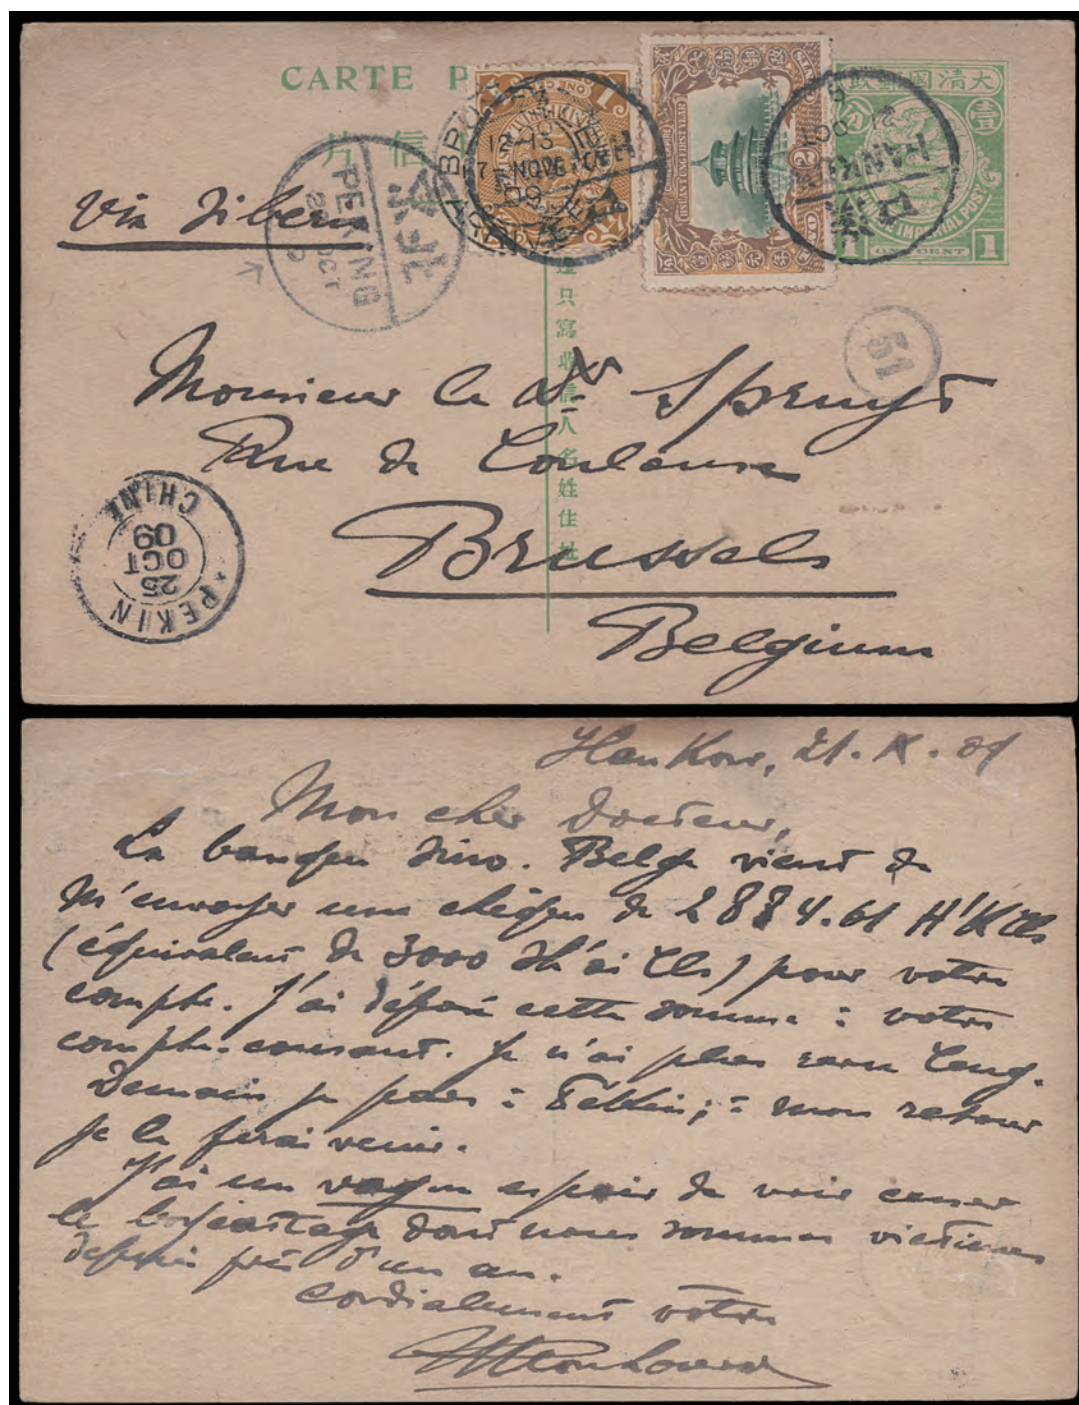 CARTE P
大清國郵政
壹
分
CHINESE IMPERIAL POST
1 ONE CENT 1
片 信
Via Siberia
PEKING
OCT
北京
BRUX
12-13
7 NOV
09
HANKOW
21 OCT
51
只寫收信人名姓住址
Monsieur le Dr Spruyt
Rue de Couleuvre
Brussels
Belgium
PEKIN
25
OCT
09
CHINE
Hankow, 21.X.09
Mon cher Docteur,
La banque Sino-Belge vient de
m'envoyer un chèque de 2884.61 H'K Tls
(équivalent de 3000 Sh'ai Tls) pour votre
compte. J'ai déposé cette somme à votre
compte-courant. Je n'ai plus revu Tong.
Demain je pars à Pékin; à mon retour
je le ferai venir.
J'ai un vague espoir de voir cesser
le boycottage dont nous sommes victimes
depuis près d'un an.
Cordialement votre